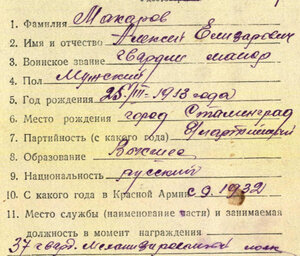 1. Фамилия Макаров
2. Имя и отчество Алексей Елизарович
3. Воинское звание гвардии майор
4. Пол Мужский
5. Год рождения 25-III-1913 года
6. Место рождения город Сталинград
7. Партийность (с какого года)
8. Образование
9. Национальность русский
10. С какого года в Красной Армии с 9.1932
11. Место службы (наименование части) и занимаемая
должность в момент награждения
37 гвард. полк